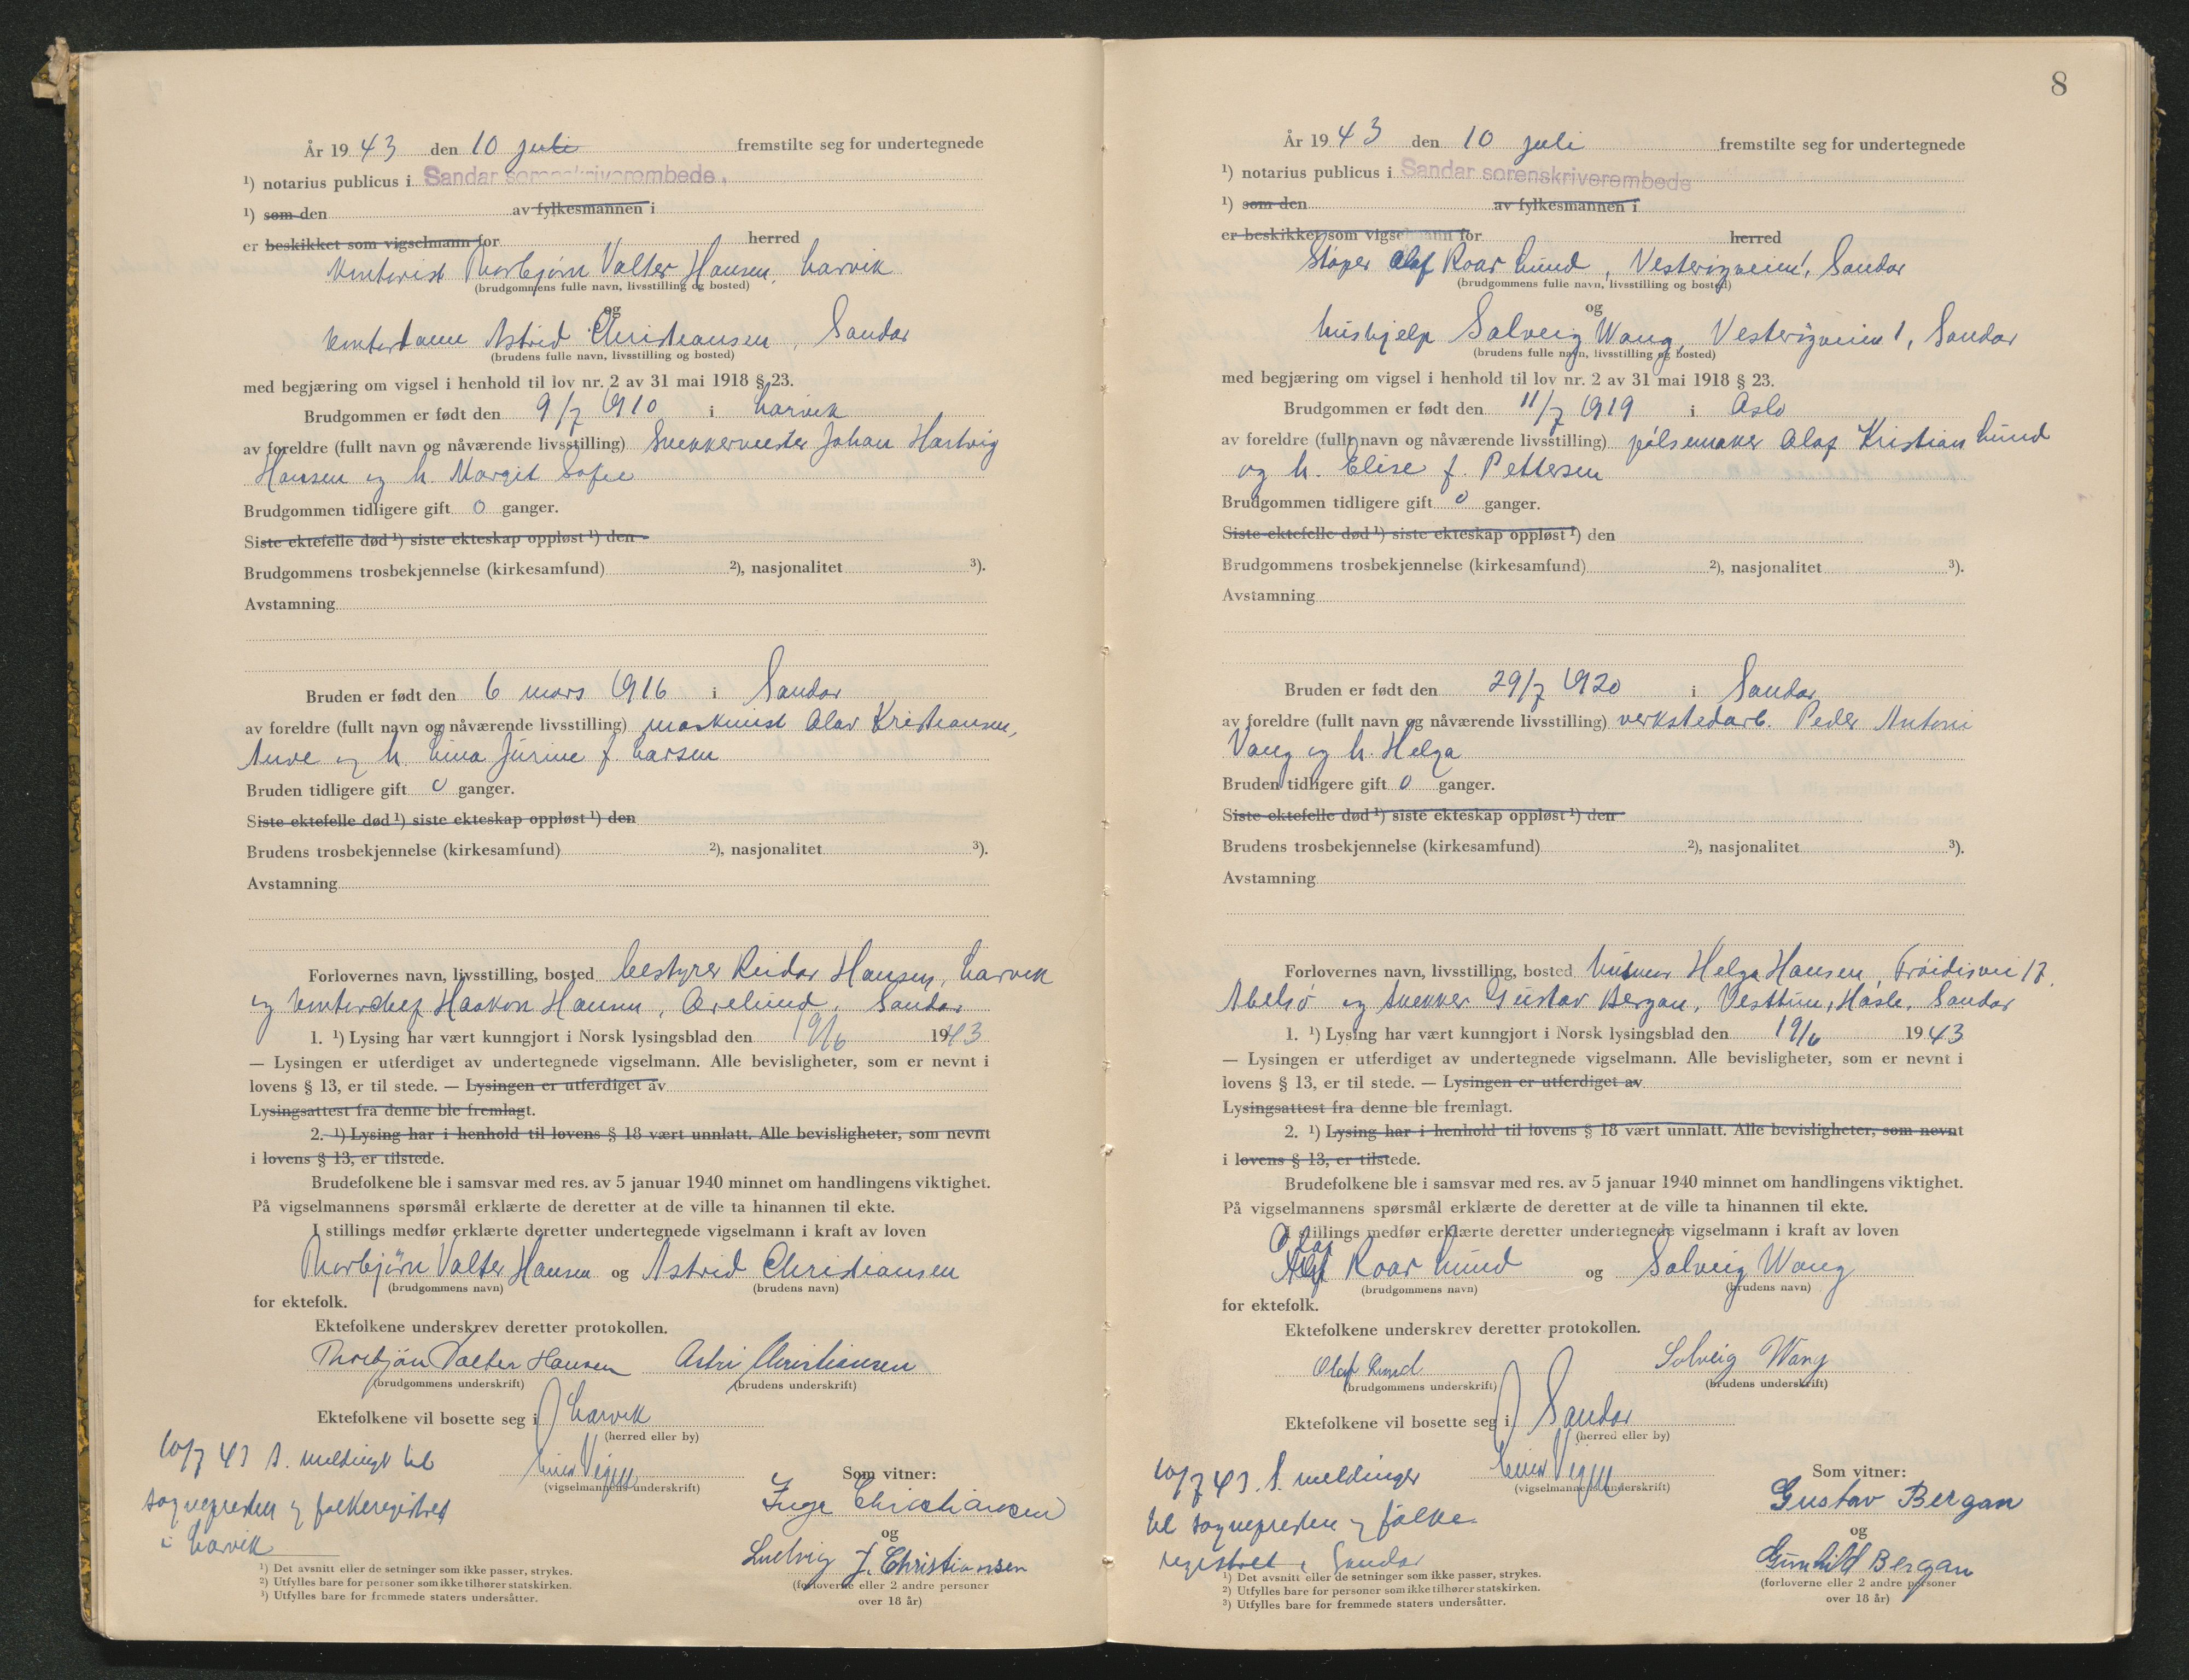 År 1943 den 10 juli fremstilte seg for undertegnede
¹) notarius publicus i Sandar sorenskriverembede.
¹) som den av fylkesmannen i
er beskikket som vigselmann for herred
Kontorist Thorbjørn Valter Hansen, Larvik
(brudgommens fulle navn, livsstilling og bosted)
og
kontordame Astrid Christiansen, Sandar
(brudens fulle navn, livsstilling og bosted)
med begjæring om vigsel i henhold til lov nr. 2 av 31 mai 1918 § 23.
Brudgommen er født den 9/7 1910 i Larvik
av foreldre (fullt navn og nåværende livsstilling) Snekkermester Johan Hartvig
Hansen og h. Margit Sofie
Brudgommen tidligere gift 0 ganger.
Siste ektefelle død ¹) siste ekteskap oppløst ¹) den
Brudgommens trosbekjennelse (kirkesamfund) ²), nasjonalitet ³).
Avstamning
Bruden er født den 6 mars 1916 i Sandar
av foreldre (fullt navn og nåværende livsstilling) maskinist Olav Kristiansen,
og h. Lina Jurine f. Larsen
Bruden tidligere gift 0 ganger.
Siste ektefelle død ¹) siste ekteskap oppløst ¹) den
Brudens trosbekjennelse (kirkesamfund) ²), nasjonalitet ³).
Avstamning
Forlovernes navn, livsstilling, bosted bestyrer Reidar Hansen, Larvik
og kontorchef Haakon Hansen, Ørelund, Sandar
1. ¹) Lysing har vært kunngjort i Norsk lysingsblad den 19/6 1943
— Lysingen er utferdiget av undertegnede vigselmann. Alle bevisligheter, som er nevnt i
lovens § 13, er til stede. — Lysingen er utferdiget av
Lysingsattest fra denne ble fremlagt.
2. ¹) Lysing har i henhold til lovens § 18 vært unnlatt. Alle bevisligheter, som nevnt
i lovens § 13, er tilstede.
Brudefolkene ble i samsvar med res. av 5 januar 1940 minnet om handlingens viktighet.
På vigselmannens spørsmål erklærte de deretter at de ville ta hinannen til ekte.
I stillings medfør erklærte deretter undertegnede vigselmann i kraft av loven
Thorbjørn Valter Hansen og Astrid Christiansen
(brudgommens navn) (brudens navn)
for ektefolk.
Ektefolkene underskrev deretter protokollen.
Thorbjørn Valter Hansen Astri Christiansen
(brudgommens underskrift) (brudens underskrift)
Ektefolkene vil bosette seg i Larvik
(herred eller by)
10/7 43 S. meldinger til
sognepresten og folkeregistret
i Larvik
(vigselmannens underskrift)
Som vitner:
Inge Christiansen
og
Ludvig J. Christiansen
(forloverne eller 2 andre personer
over 18 år)
¹) Det avsnitt eller de setninger som ikke passer, strykes.
²) Utfylles bare for personer som ikke tilhører statskirken.
³) Utfylles bare for fremmede staters undersåtter.
8
År 1943 den 10 juli fremstilte seg for undertegnede
¹) notarius publicus i Sandar sorenskriverembede
¹) som den av fylkesmannen i
er beskikket som vigselmann for herred
Støper Olaf Roar Lund, Vesterøyveien 1, Sandar
(brudgommens fulle navn, livsstilling og bosted)
og
hushjelp Solveig Wang, Vesterøyveien 1, Sandar
(brudens fulle navn, livsstilling og bosted)
med begjæring om vigsel i henhold til lov nr. 2 av 31 mai 1918 § 23.
Brudgommen er født den 11/7 1919 i Oslo
av foreldre (fullt navn og nåværende livsstilling) pølsemaker Olaf Kristian Lund
og h. Elise f. Pettersen
Brudgommen tidligere gift 0 ganger.
Siste ektefelle død ¹) siste ekteskap oppløst ¹) den
Brudgommens trosbekjennelse (kirkesamfund) ²), nasjonalitet ³).
Avstamning
Bruden er født den 29/7 1920 i Sandar
av foreldre (fullt navn og nåværende livsstilling) verkstedarb. Peder Antoni
Vang og h. Helga
Bruden tidligere gift 0 ganger.
Siste ektefelle død ¹) siste ekteskap oppløst ¹) den
Brudens trosbekjennelse (kirkesamfund) ²), nasjonalitet ³).
Avstamning
Forlovernes navn, livsstilling, bosted husmor Helga Hansen 17,
Abelsø og snekker Gustav Bergan, Vesttun, Hasle, Sandar
1. ¹) Lysing har vært kunngjort i Norsk lysingsblad den 19/6 1943
— Lysingen er utferdiget av undertegnede vigselmann. Alle bevisligheter, som er nevnt i
lovens § 13, er til stede. — Lysingen er utferdiget av
Lysingsattest fra denne ble fremlagt.
2. ¹) Lysing har i henhold til lovens § 18 vært unnlatt. Alle bevisligheter, som nevnt
i lovens § 13, er tilstede.
Brudefolkene ble i samsvar med res. av 5 januar 1940 minnet om handlingens viktighet.
På vigselmannens spørsmål erklærte de deretter at de ville ta hinannen til ekte.
I stillings medfør erklærte deretter undertegnede vigselmann i kraft av loven
Olaf
Roar Lund og Solveig Wang
(brudgommens navn) (brudens navn)
for ektefolk.
Ektefolkene underskrev deretter protokollen.
Olaf Lund Solveig Wang
(brudgommens underskrift) (brudens underskrift)
Ektefolkene vil bosette seg i Sandar
(herred eller by)
10/7 43. S. meldinger
til sognepresten og folke-
registret i Sandar
(vigselmannens underskrift)
Som vitner:
Gustav Bergan
og
Gunhild Bergan
(forloverne eller 2 andre personer
over 18 år)
¹) Det avsnitt eller de setninger som ikke passer, strykes.
²) Utfylles bare for personer som ikke tilhører statskirken.
³) Utfylles bare for fremmede staters undersåtter.